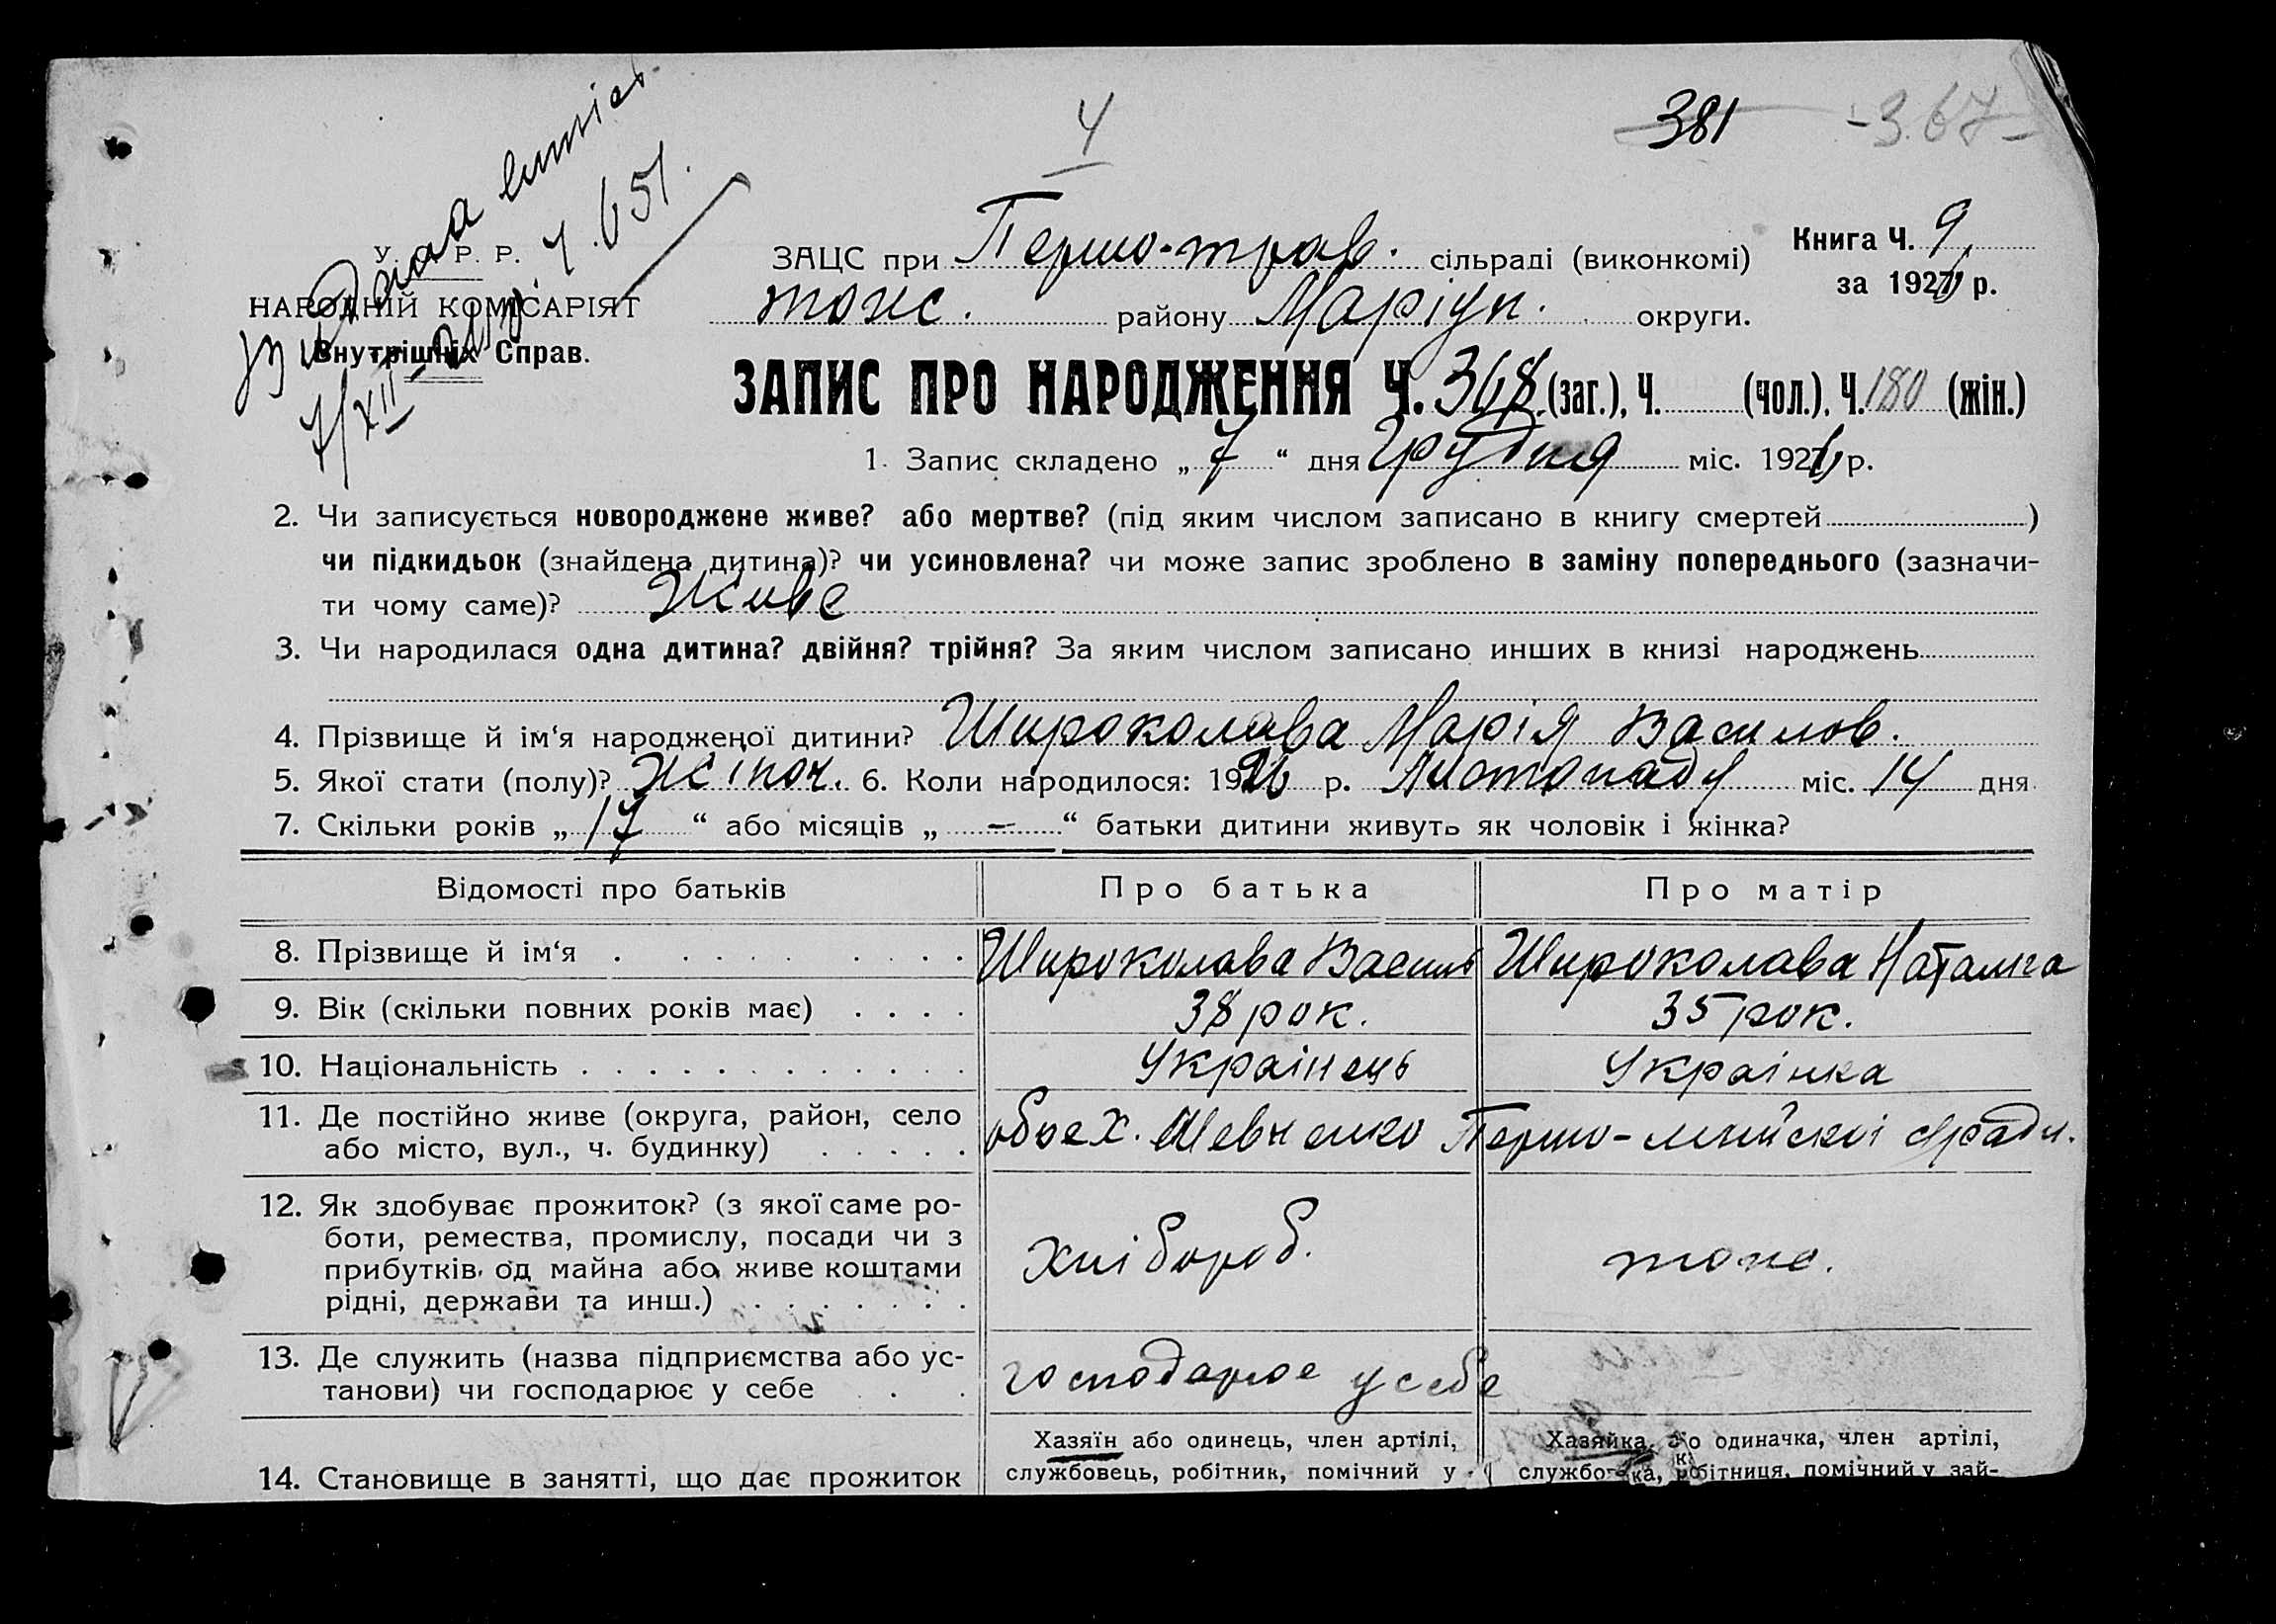 4
381
-367-
Видана виписъ
7/XII-26 р. Ч. 651.
У. С. Р. Р.
НАРОДНІЙ КОМІСАРІЯТ
Внутрішніх Справ.
ЗАЦС при Першо-трав. сільраді (виконкомі)
тоже. району Маріуп. округи.
Книга Ч. 9
за 1926 р.
ЗАПИС ПРО НАРОДЖЕННЯ Ч. 368 (заг.), Ч. (чол.), Ч. 180 (жін.)
1. Запис складено „ 7 “ дня Грудня міс. 1926 р.
2. Чи записується новороджене живе? або мертве? (під яким числом записано в книгу смертей )
чи підкидьок (знайдена дитина)? чи усиновлена? чи може запис зроблено в заміну попереднього (зазначи-
ти чому саме)? Живе
3. Чи народилася одна дитина? двійня? трійня? За яким числом записано инших в книзі народжень
4. Прізвище й ім‘я народженої дитини? Широколава Марія Василов.
5. Якої стати (полу)? Жіноч. 6. Коли народилося: 1926 р. Листопада міс. 14 дня
7. Скільки років „ 17 “ або місяців „ — “ батьки дитини живуть як чоловік і жінка?
Відомості про батьків Про батька Про матір
8. Прізвище й ім‘я . . . . . . . . Широколава Василь Широколава Наталія
9. Вік (скільки повних років має) . . . . 38 рок. 35 рок.
10. Національність . . . . . . . . . . . . . Українець Українка
11. Де постійно живе (округа, район, село
або місто, вул., ч. будинку) . . . . . обоє х. Шевченко Першо-
12. Як здобуває прожиток? (з якої саме ро-
боти, ремества, промислу, посади чи з
прибутків од майна або живе коштами
рідні, держави та инш.) . . . . . . . хлібороб. тоже.
13. Де служить (назва підприємства або ус-
танови) чи господарює у себе . . . господарює у себе
14. Становище в занятті, що дає прожиток
Хазяїн або одинець, член артілі,
службовець, робітник, помічний у
Хазяйка або одиначка, член артілі,
службовка, робітниця, помічний у зай-